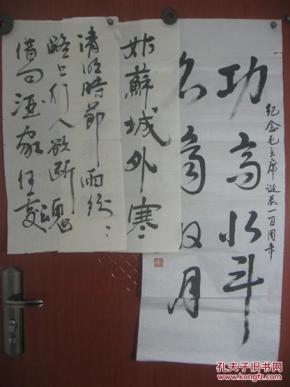 纪念毛主席诞辰一百周年
功高北斗
日月
姑蘇城外寒
清明時節雨纷
路上行人欲断魂
借问酒家何处
孔夫子旧书网